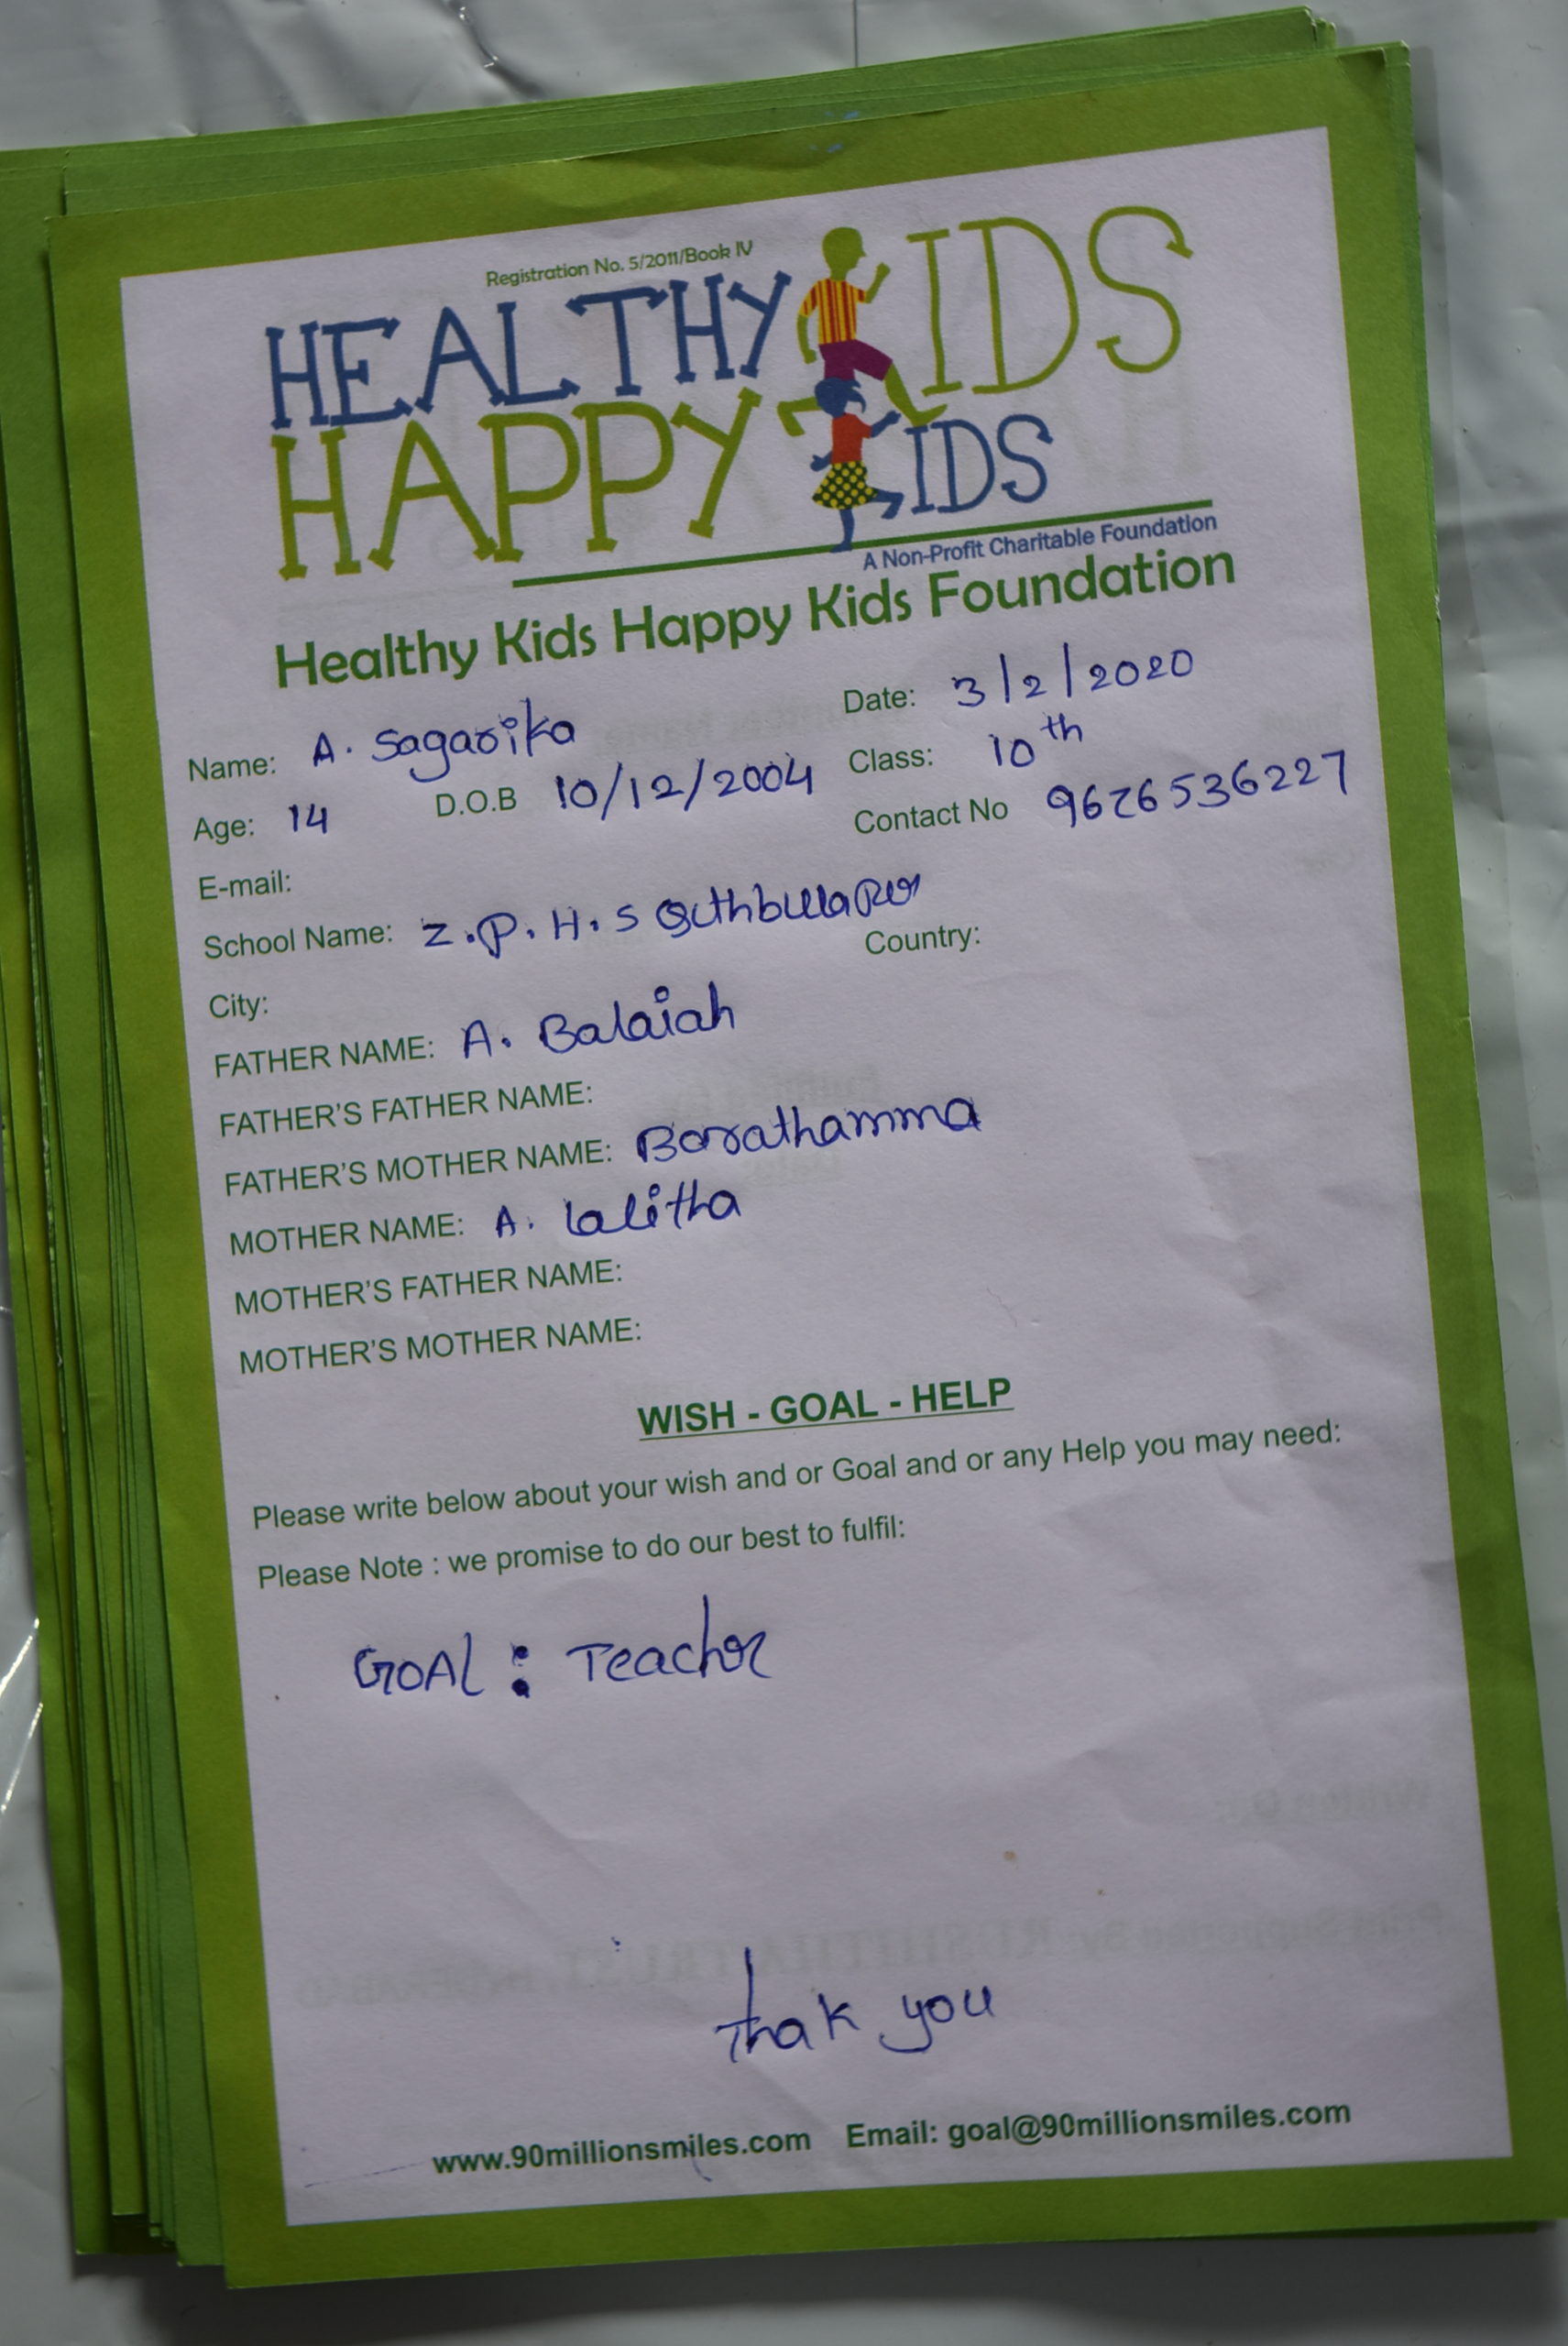 Registration No. 5/2011/Book IV
HEALTHY KIDS
HAPPY KIDS
A Non-Profit Charitable Foundation
Healthy Kids Happy Kids Foundation
Name: A. Sagarika Date: 3/2/2020
Age: 14 D.O.B 10/12/2004 Class: 10th
Contact No 9676536227
E-mail:
School Name: Z.P.H.S Quthbullapur
City: Country:
FATHER NAME: A. Balaiah
FATHER'S FATHER NAME:
FATHER'S MOTHER NAME: Barathamma
MOTHER NAME: A. lalitha
MOTHER'S FATHER NAME:
MOTHER'S MOTHER NAME:
WISH - GOAL - HELP
Please write below about your wish and or Goal and or any Help you may need:
Please Note : we promise to do our best to fulfil:
GOAL : Teacher
Thak you
www.90millionsmiles.com Email: goal@90millionsmiles.com